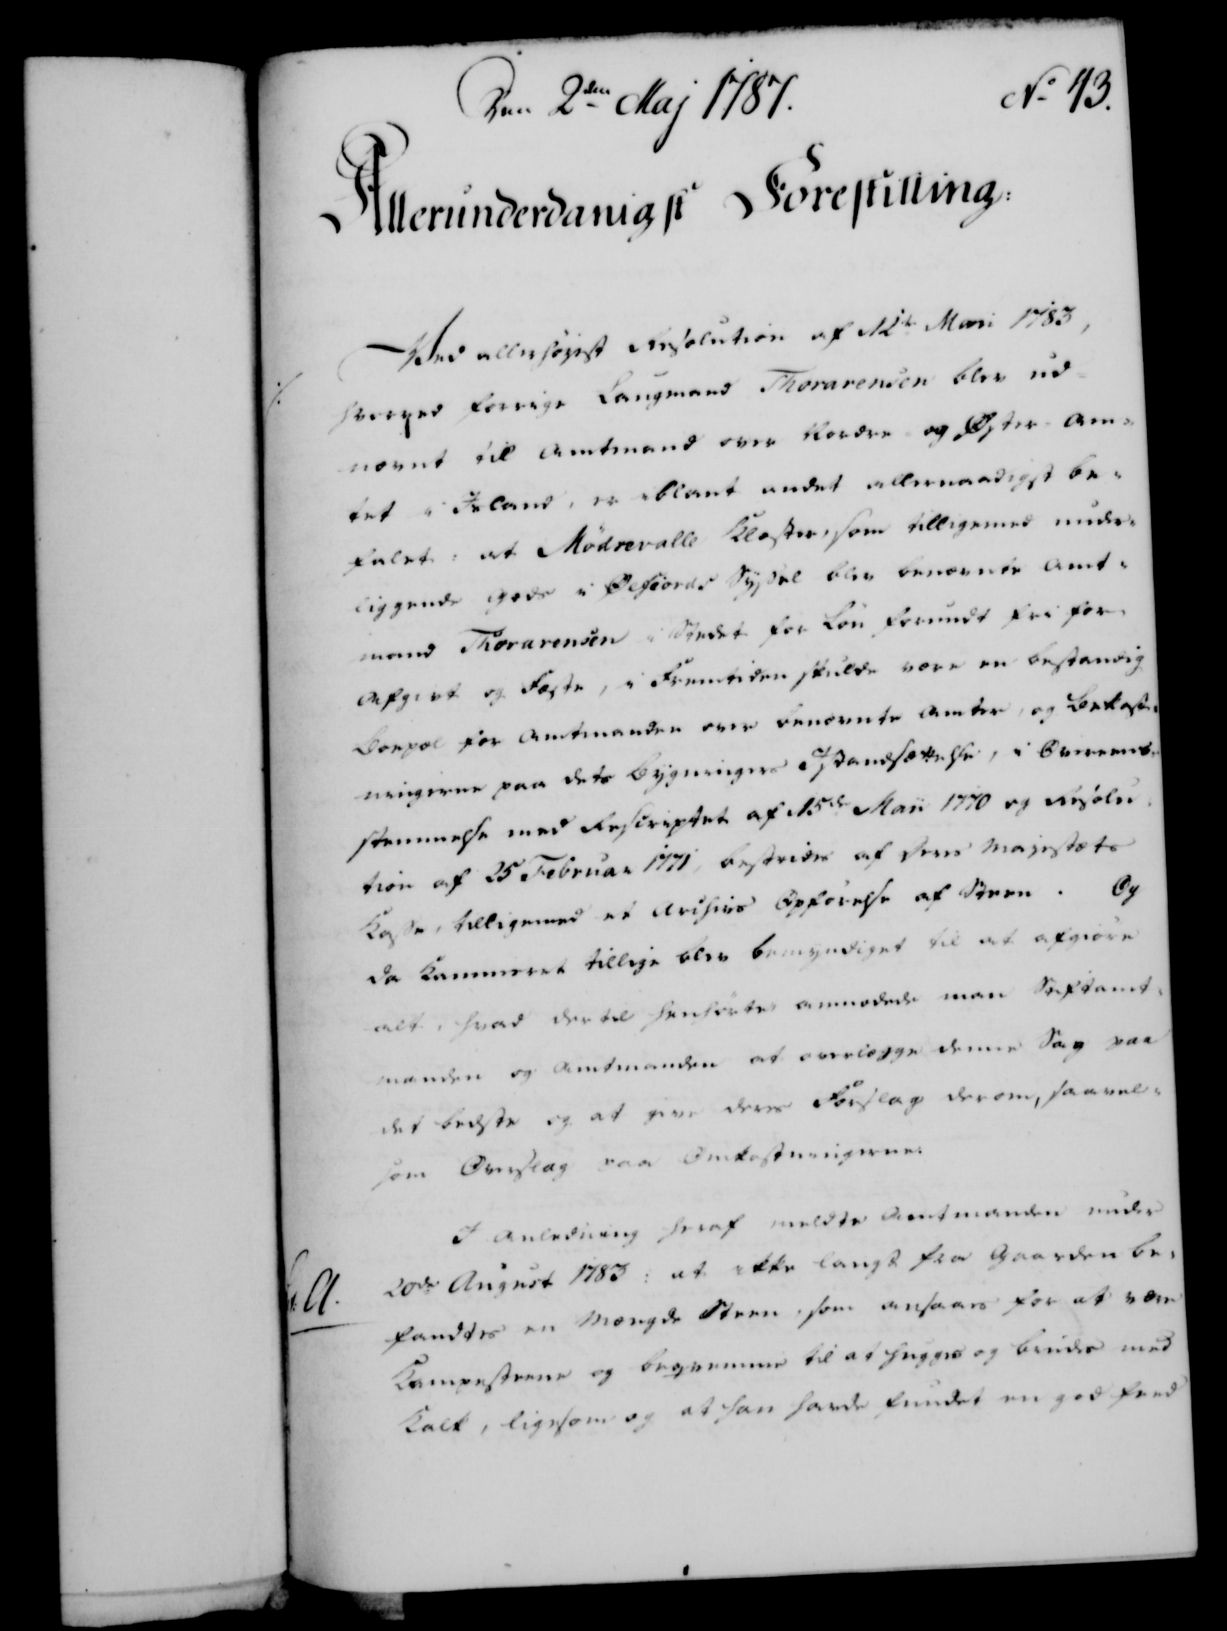 Den 2den Maj 1787. No 43.
Allerunderdanigst Forestilling:
Ved allerhøyest Resolution af 12te Maii 1783,
hvorved forrige Laugmand Thorarensen blev ud-
nævnt til Amtmand over Nordre- og Øster-Am-
tet i Island, er iblant andet allernaadigst be-
falet: at Mødrevalle Kloster, som tilligemed under-
liggende Gods i Øefiords Syssel blev benævnte Amt-
mand Thorarensen i Stedet for Løn forundt fri for
Afgivt og Fæste, i Fremtiden skulde være en bestandig
Boepæl for Amtmanden over benævnte Amter, og Bekost-
ningerne paa dets Bygningers Istandsættelse, i Overeens-
stemmelse med Rescriptet af 15de Maii 1770 og Resolu-
tion af 25 Februar 1771, bestrides af Deres Majestæts
Kasse, tilligemed et Archivs Opførelse af Steen. Og
da Kammeret tillige blev bemyndiget til at afgiøre
alt, hvad dertil henhørte, anmodede man Stiftamt-
manden og Amtmanden at overlægge denne Sag paa
det bedste og at give deres Forslag derom, saavel-
som Overslag paa Omkostningerne.
I Anledning heraf meldte Amtmanden under
A. 20de August 1783: at ikke langt fra Gaarden be-
fandtes en Mængde Steen, som ansaaes for at være
Kampesteene og beqvemme til at hugges og bindes med
Kalk, ligesom og at han havde fundet en god feed